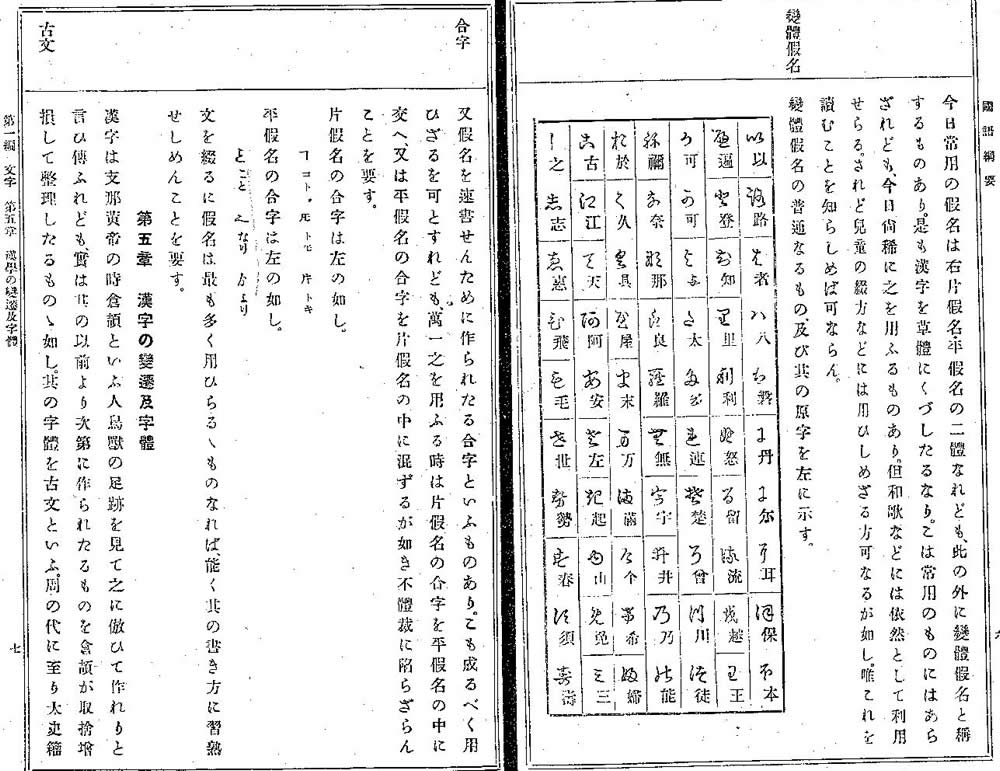 國語綱要
六
變體假名
今日常用の假名は右片假名、平假名の二體なれども、此の外に變體假名と稱
するものあり。是も漢字を草體にくづしたるなり。こは常用のものにはあら
ざれども、今日尙稀に之を用ふるものあり。但和歌などには依然として利用
せらる。されど兒童の綴方などには用ひしめざる方可なるが如し。唯これを
讀むことを知らしめば可ならん。
變體假名の普通なるもの、及び其の原字を左に示す。
以 路 者 八 磐 丹 尓 耳 保 本
遍 登 知 里 利 怒 留 流 越 王
可 可 与 太 多 連 楚 曾 川 徒
禰 奈 那 良 羅 無 宇 井 乃 能
於 久 具 屋 末 万 滿 个 希 婦
古 江 天 阿 安 左 起 山 免 三
之 志 惠 飛 毛 世 勢 春 須 壽
合字
又假名を速書せんために作られたる合字といふものあり。こも成るべく用
ひざるを可とすれども、萬一之を用ふる時は片假名の合字を平假名の中に
交へ、又は平假名の合字を片假名の中に混ずるが如き不體裁に陷らざらん
ことを要す。
片假名の合字は左の如し。
ヿ コト、 𪜈 トモ 𪜈 トキ
平假名の合字は左の如し。
こと なり より
文を綴るに假名は最も多く用ひらるゝものなれば能く其の書き方に習熟
せしめんことを要す。
第五章 漢字の變遷及字體
古文
漢字は支那黃帝の時倉頡といふ人鳥獸の足跡を見て之に倣ひて作れりと
言ひ傳ふれども、實は其の以前より次第に作られたるものを倉頡が取捨增
損して整理したるものゝ如し。其の字體を古文といふ。周の代に至り太史籀
第一編 文字 第五章 漢學の變遷及字體
七